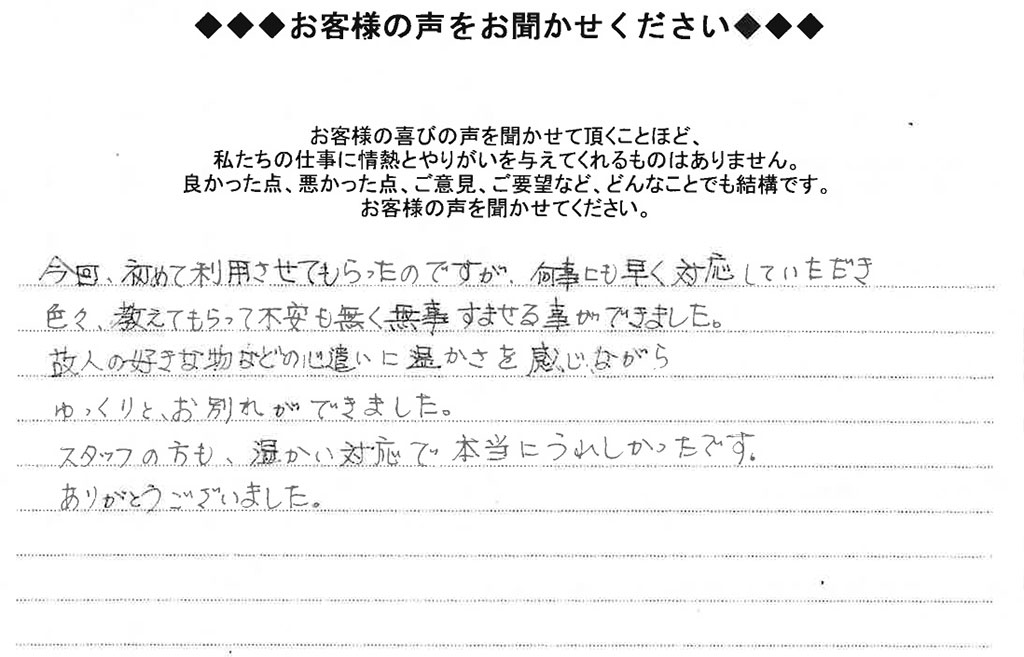 ◆◆◆お客様の声をお聞かせください◆◆◆
お客様の喜びの声を聞かせて頂くことほど、
私たちの仕事に情熱とやりがいを与えてくれるものはありません。
良かった点、悪かった点、ご意見、ご要望など、どんなことでも結構です。
お客様の声を聞かせてください。
今回、初めて利用させてもらったのですが、何事にも早く対応していただき
色々、教えてもらって不安も無く無事すませる事ができました。
故人の好きな物などの心遣いに温かさを感じながら
ゆっくりと、お別れができました。
スタッフの方も、温かい対応で本当にうれしかったです。
ありがとうございました。